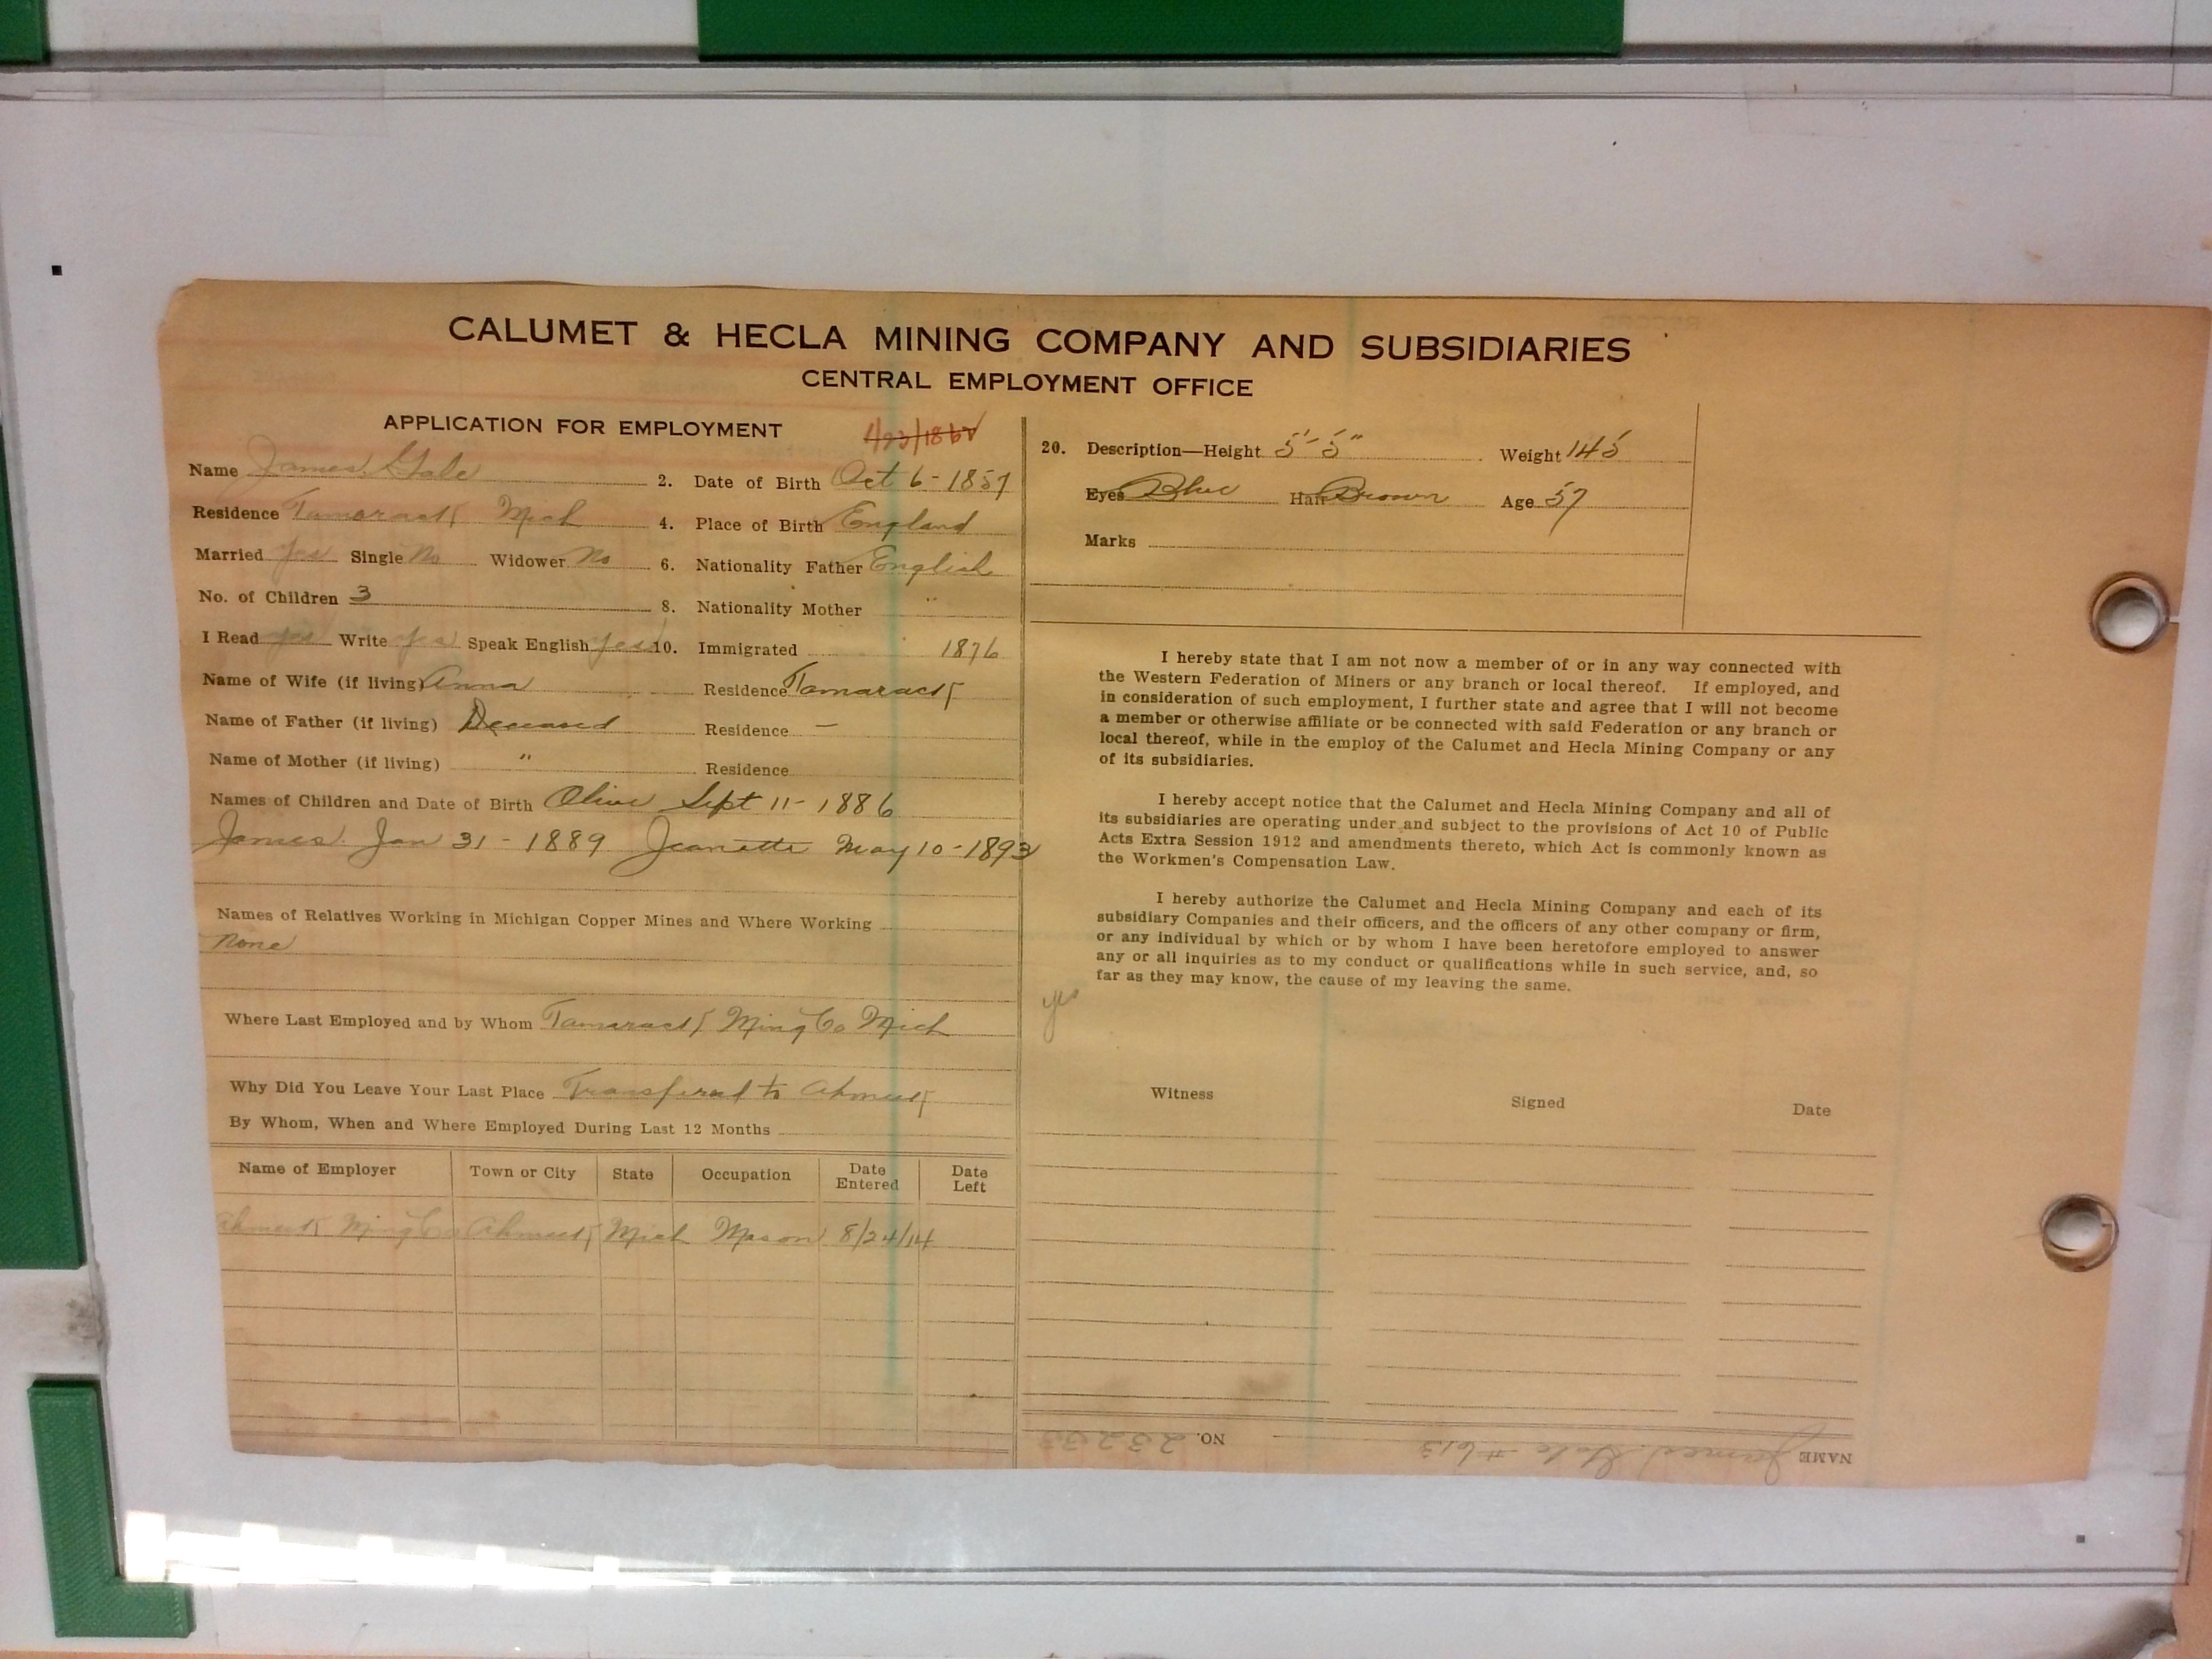 CALUMET & HECLA MINING COMPANY AND SUBSIDIARIES
CENTRAL EMPLOYMENT OFFICE
APPLICATION FOR EMPLOYMENT
Name James Gale 2. Date of Birth Oct 6 - 1857
Residence Tamarack Mich 4. Place of Birth England
Married Yes Single No Widower No 6. Nationality Father English
No. of Children 3 8. Nationality Mother "
I Read yes Write yes Speak English yes 10. Immigrated 1876
Name of Wife (if living) Anna Residence Tamarack
Name of Father (if living) Deceased Residence —
Name of Mother (if living) " Residence
Names of Children and Date of Birth Olive Sept 11 - 1886
James Jan 31 - 1889 Jeanette May 10 - 1893
Names of Relatives Working in Michigan Copper Mines and Where Working
None
Where Last Employed and by Whom Tamarack Ming Co Mich
Why Did You Leave Your Last Place Transferred to Ahmeek
By Whom, When and Where Employed During Last 12 Months
Name of Employer Town or City State Occupation Date Entered Date Left
Ahmeek Ming Co Ahmeek Mich Mason 8/24/14
20. Description—Height 5'-5" Weight 145
Eyes Blue Hair Brown Age 57
Marks
I hereby state that I am not now a member of or in any way connected with
the Western Federation of Miners or any branch or local thereof. If employed, and
in consideration of such employment, I further state and agree that I will not become
a member or otherwise affiliate or be connected with said Federation or any branch or
local thereof, while in the employ of the Calumet and Hecla Mining Company or any
of its subsidiaries.
I hereby accept notice that the Calumet and Hecla Mining Company and all of
its subsidiaries are operating under and subject to the provisions of Act 10 of Public
Acts Extra Session 1912 and amendments thereto, which Act is commonly known as
the Workmen's Compensation Law.
I hereby authorize the Calumet and Hecla Mining Company and each of its
subsidiary Companies and their officers, and the officers of any other company or firm,
or any individual by which or by whom I have been heretofore employed to answer
any or all inquiries as to my conduct or qualifications while in such service, and, so
far as they may know, the cause of my leaving the same.
yes
Witness Signed Date
NAME James Gale #613 NO.